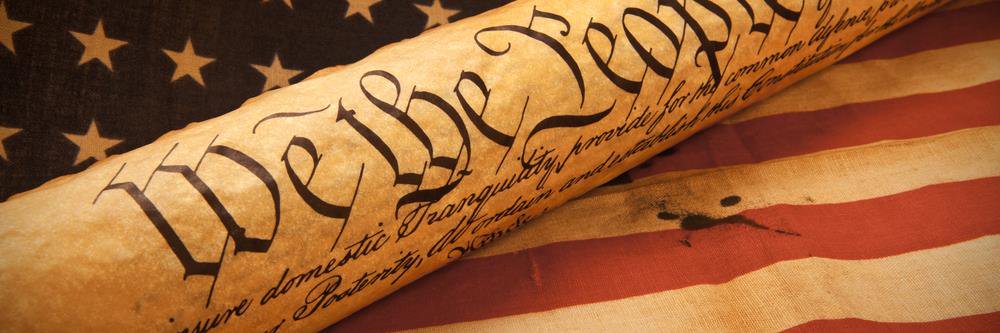 We the People
insure domestic Tranquility, provide for the common defence,
our Posterity, do ordain and establish this Constitution for the